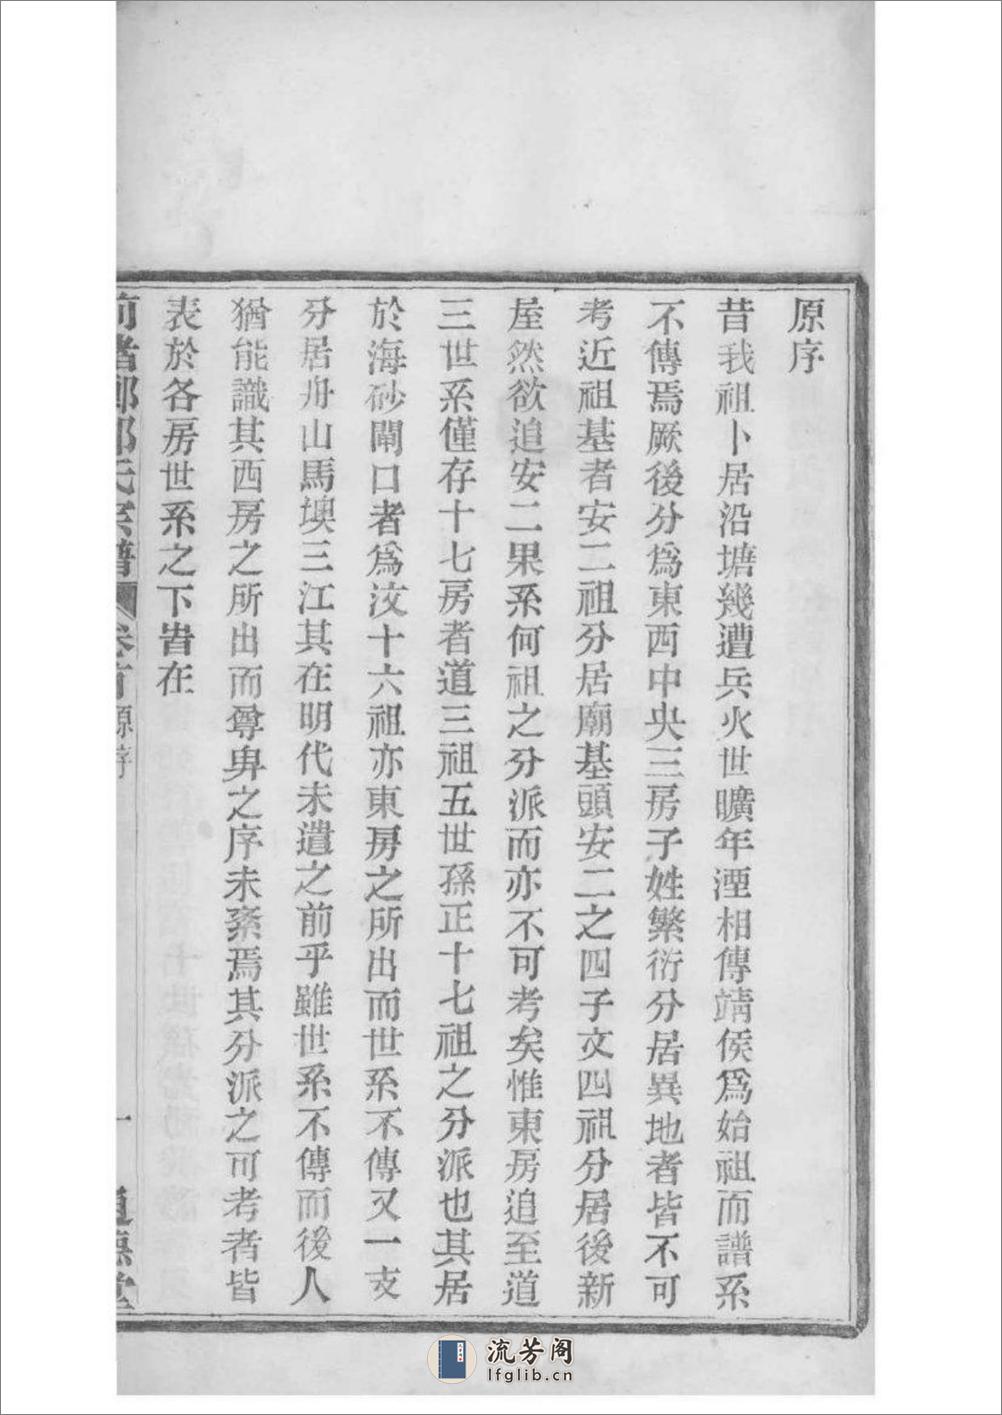 原序
昔我祖卜居沿塘幾遭兵火世曠年湮相傳靖侯爲始祖而譜系
不傳焉厥後分爲東西中央三房子姓繁衍分居異地者皆不可
考近祖基者安二祖分居廟基頭安二之四子文四祖分居後新
屋然欲追安二果系何祖之分派而亦不可考矣惟東房追至道
三世系僅存十七房者道三祖五世孫正十七祖之分派也其居
於海砂閘口者爲汶十六祖亦東房之所出而世系不傳又一支
分居舟山馬墺三江其在明代未遣之前乎雖世系不傳而後人
猶能識其西房之所出而尊卑之序未紊焉其分派之可考者皆
表於各房世系之下旹在
氏宗譜 卷首 原序 一 道德堂
流芳阁
lfglib.cn